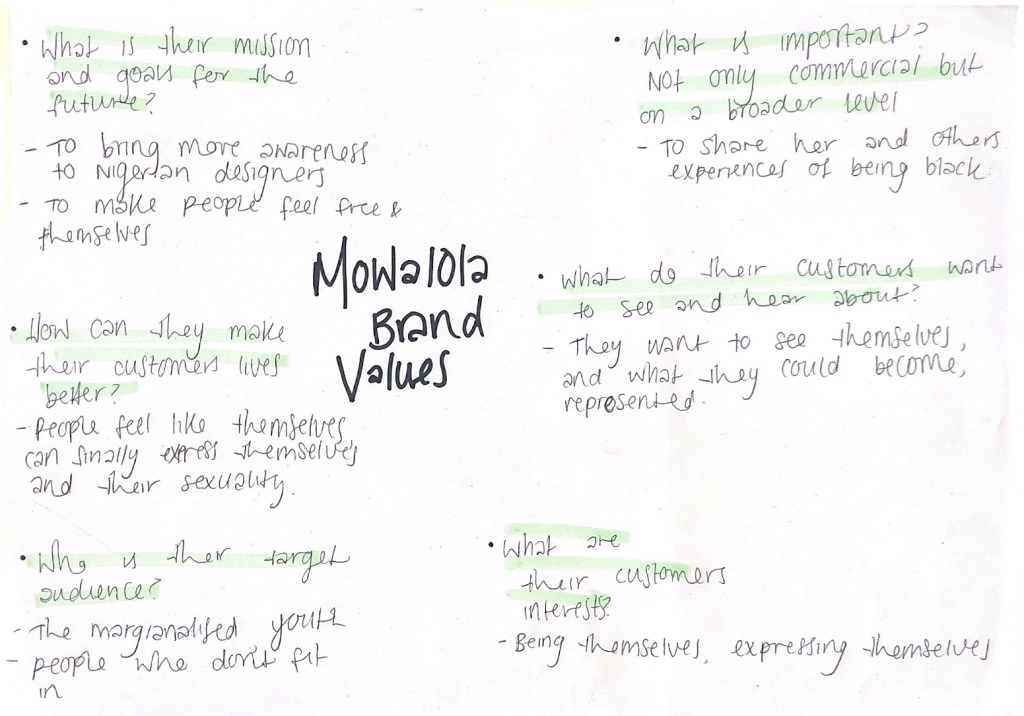 • What is their mission
and goals for the
future?
- To bring more awareness
to Nigerian designers
- To make people feel free &
themselves
• What is important?
Not only commercial but
on a broader level
- To share her and others
experiences of being black.
Mowalola
Brand
Values
• What do their customers want
to see and hear about?
- They want to see themselves,
and what they could become,
represented.
• How can they make
their customers lives
better?
- People feel like themselves,
can finally express themselves
and their sexuality.
• Who is their target
audience?
- The margianalised youth
- people who don't fit
in
• What are
their customers
interests?
- Being themselves, expressing themselves